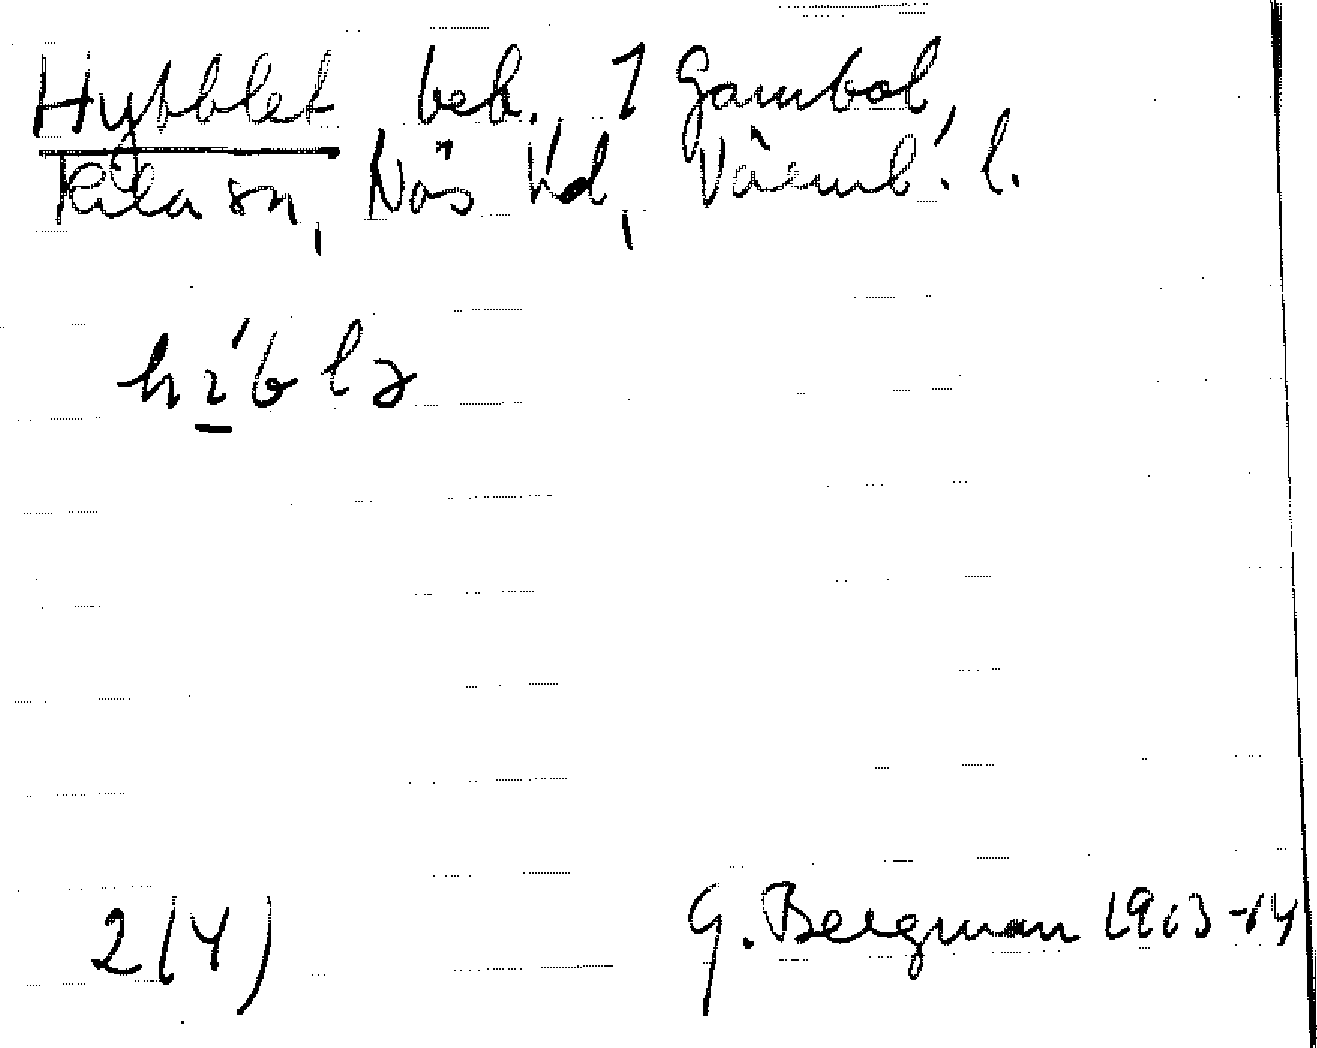 Hybblet beb. 1 Gambol,
Kila sn, Näs hd, Värml. l.
2(4)
G. Bergman 1963-64